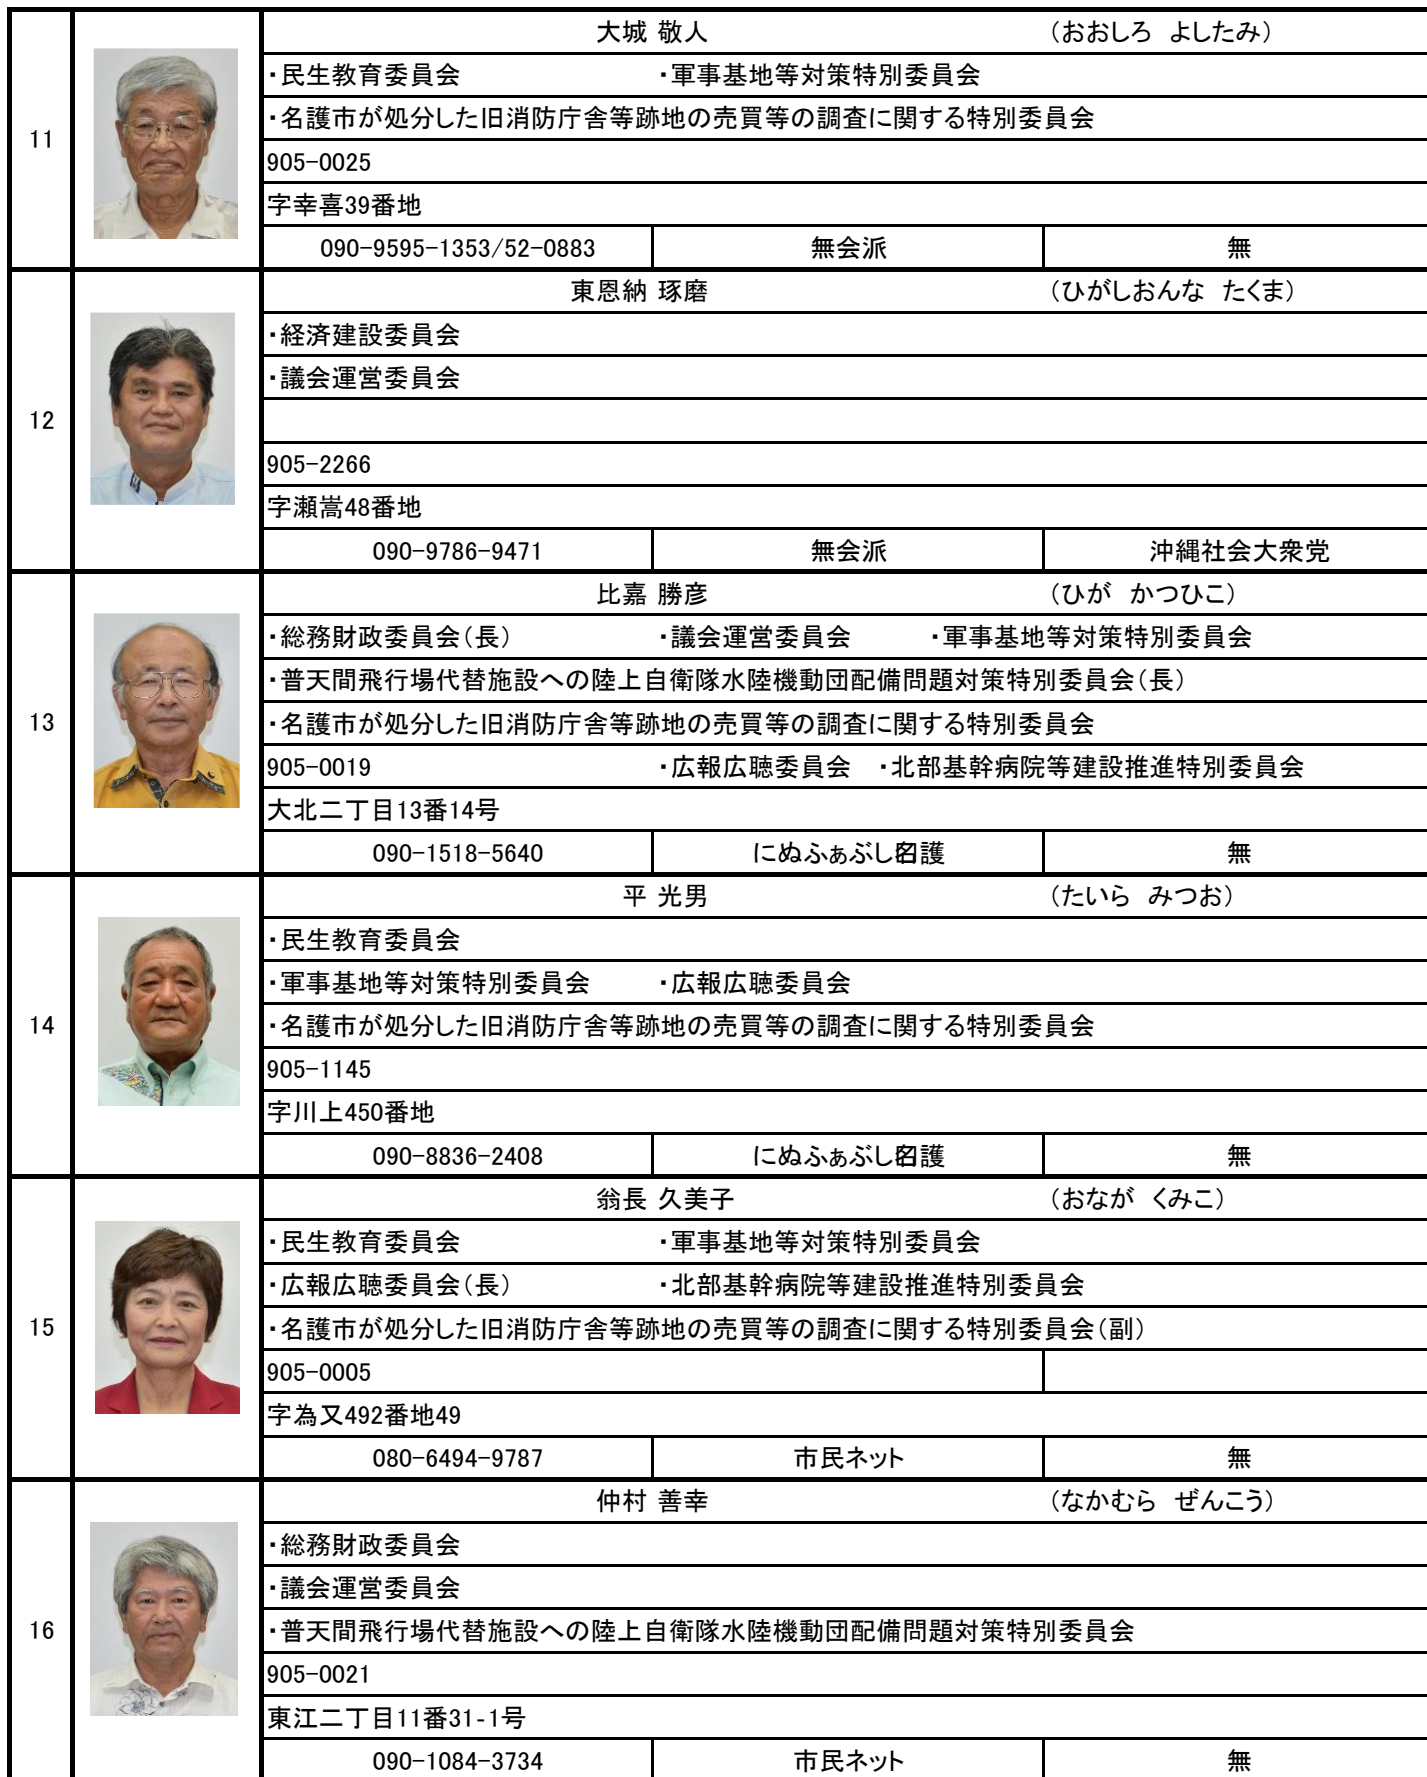 11
大城 敬人 （おおしろ よしたみ）
・民生教育委員会 ・軍事基地等対策特別委員会
・名護市が処分した旧消防庁舎等跡地の売買等の調査に関する特別委員会
905-0025
字幸喜39番地
090-9595-1353/52-0883 無会派 無
12
東恩納 琢磨 （ひがしおんな たくま）
・経済建設委員会
・議会運営委員会
905-2266
字瀬嵩48番地
090-9786-9471 無会派 沖縄社会大衆党
13
比嘉 勝彦 （ひが かつひこ）
・総務財政委員会（長） ・議会運営委員会 ・軍事基地等対策特別委員会
・普天間飛行場代替施設への陸上自衛隊水陸機動団配備問題対策特別委員会（長）
・名護市が処分した旧消防庁舎等跡地の売買等の調査に関する特別委員会
905-0019 ・広報広聴委員会 ・北部基幹病院等建設推進特別委員会
大北二丁目13番14号
090-1518-5640 にぬふぁぶし名護 無
14
平 光男 （たいら みつお）
・民生教育委員会
・軍事基地等対策特別委員会 ・広報広聴委員会
・名護市が処分した旧消防庁舎等跡地の売買等の調査に関する特別委員会
905-1145
字川上450番地
090-8836-2408 にぬふぁぶし名護 無
15
翁長 久美子 （おなが くみこ）
・民生教育委員会 ・軍事基地等対策特別委員会
・広報広聴委員会（長） ・北部基幹病院等建設推進特別委員会
・名護市が処分した旧消防庁舎等跡地の売買等の調査に関する特別委員会（副）
905-0005
字為又492番地49
080-6494-9787 市民ネット 無
16
仲村 善幸 （なかむら ぜんこう）
・総務財政委員会
・議会運営委員会
・普天間飛行場代替施設への陸上自衛隊水陸機動団配備問題対策特別委員会
905-0021
東江二丁目11番31-1号
090-1084-3734 市民ネット 無